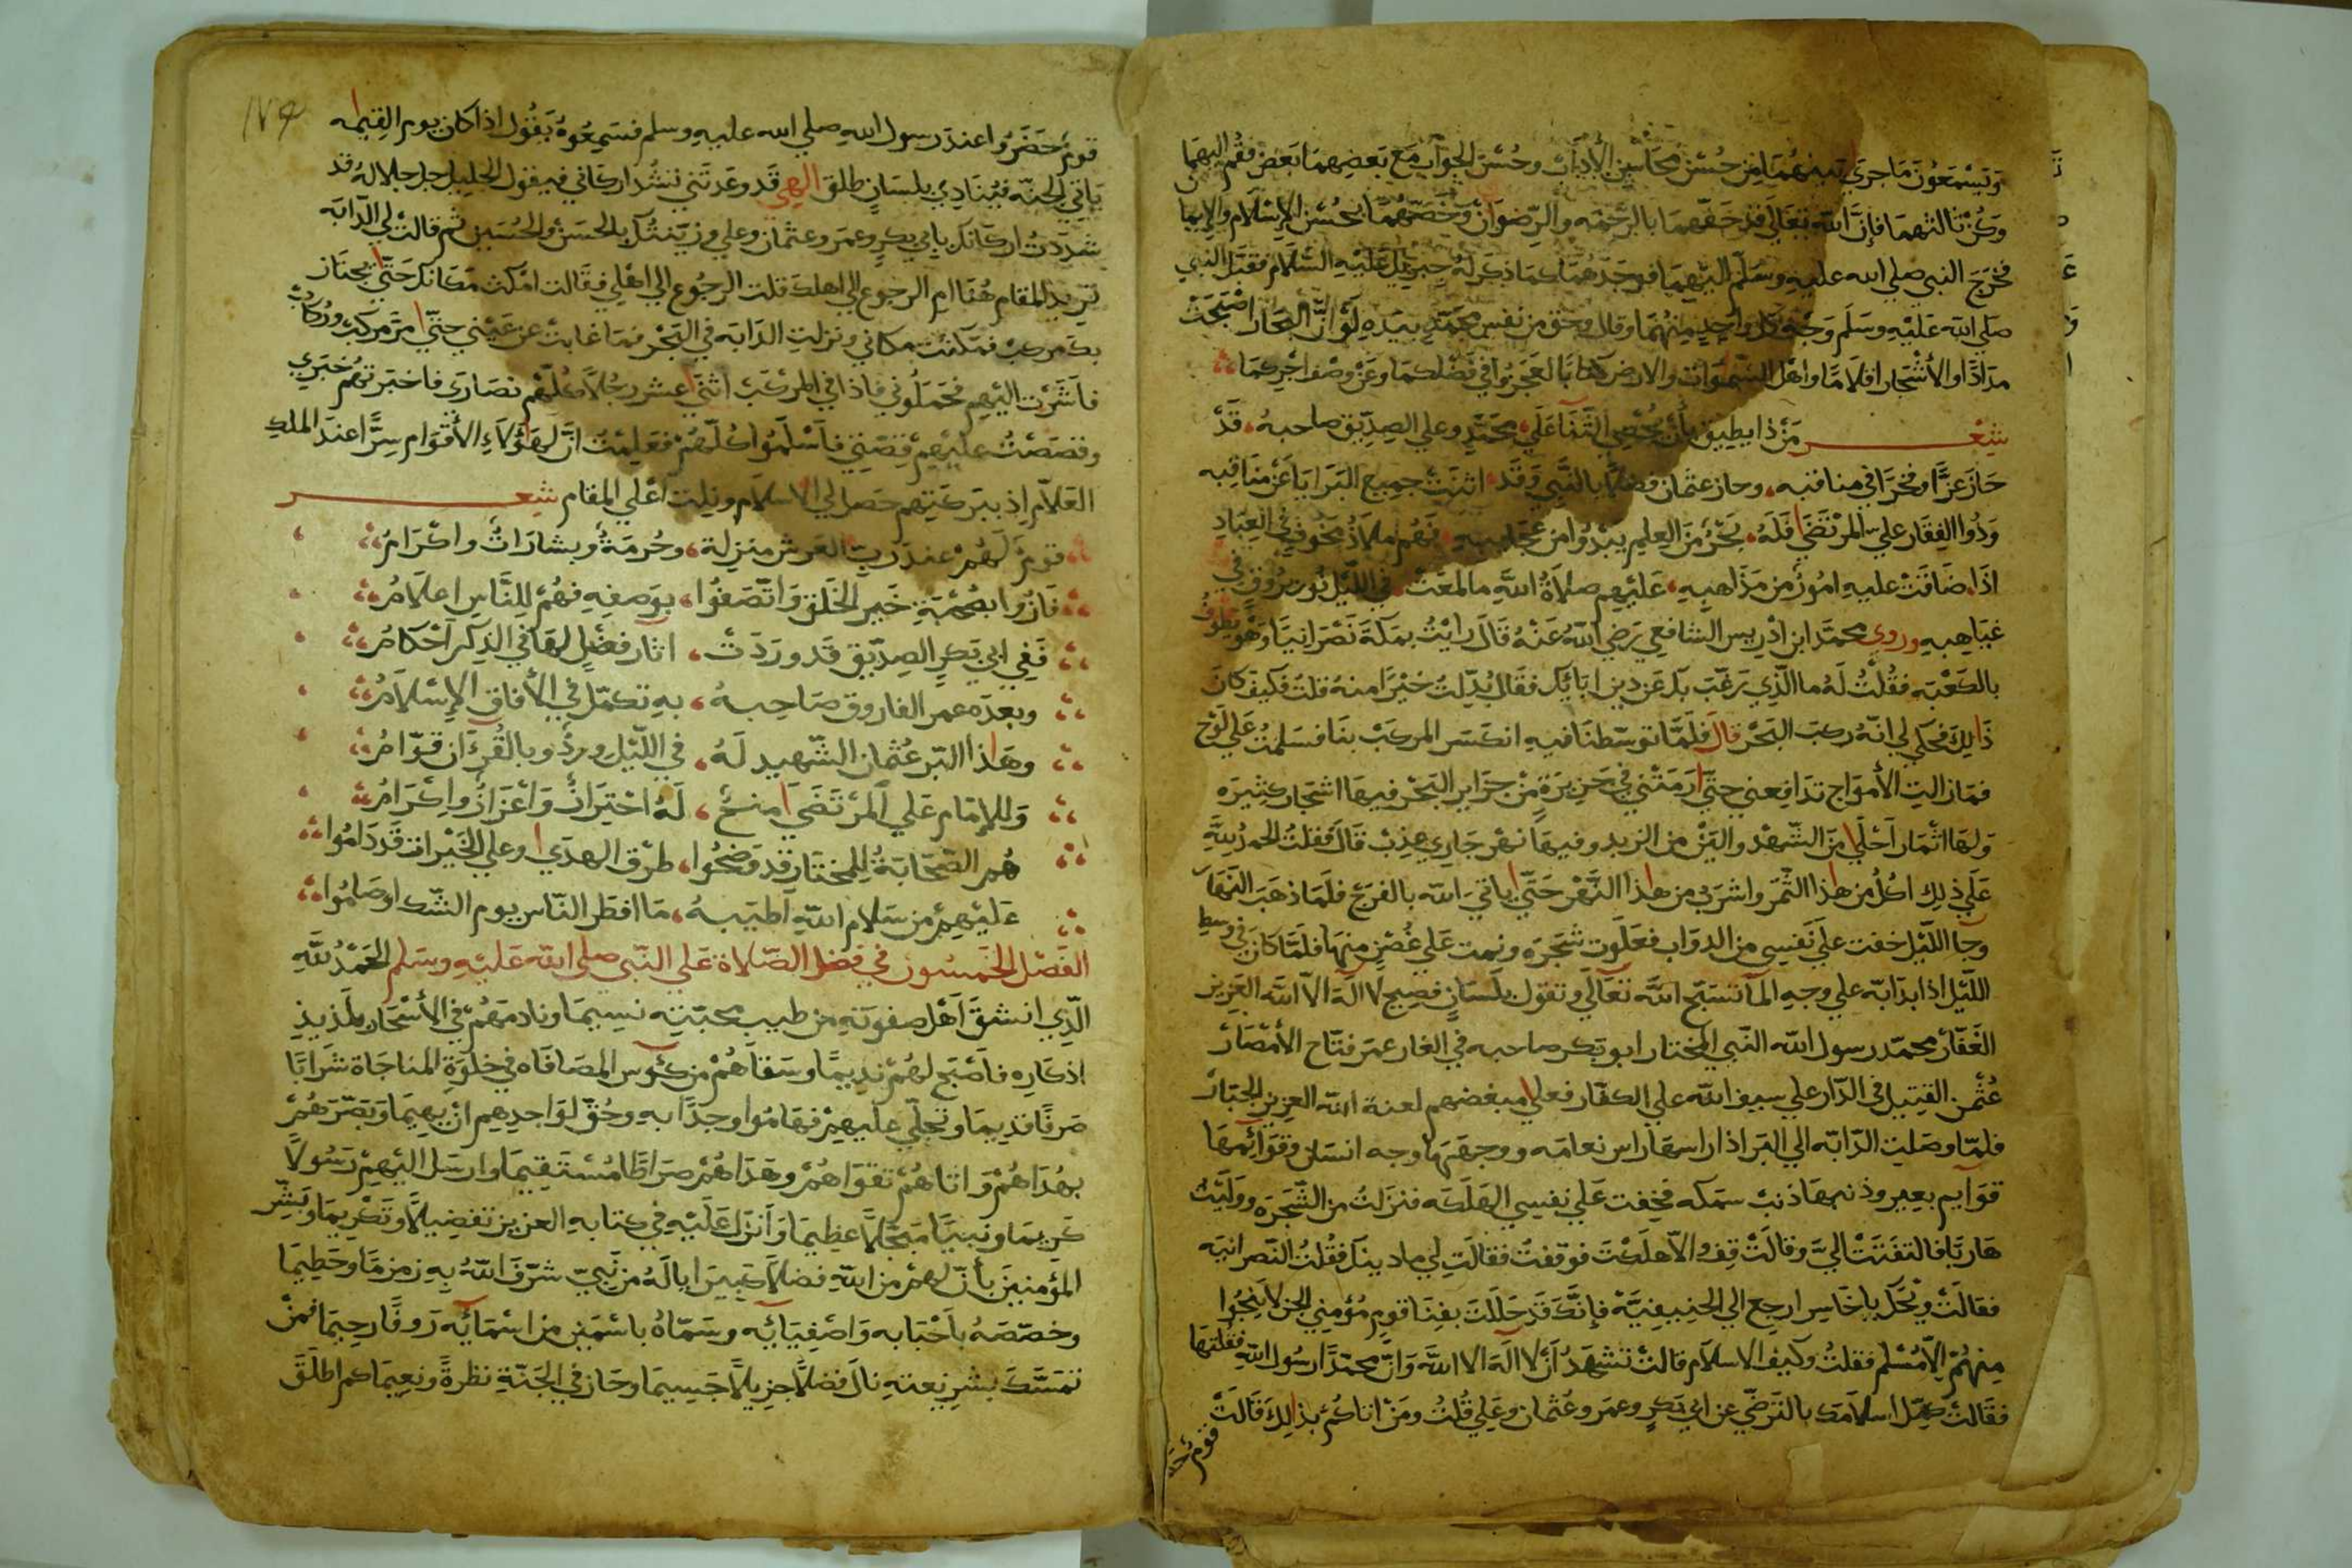 وَيَسْمَعُونَ مَا جرَي بينهُمَا مِن حُسْن محَاسِن الأدبَاتْ وحُسْن الجوَاب مَع بَعضِهمَا بَعض فقُم اليهمَا
وَكُنْ ثالثهمَا فإنَّ الله تعَالَي قد حَفّهمَا بالرحْمَه والرِضوَانْ وَخَصّهُمَا بحُسْن الإسْلَام والإيمَا
فخرَج النبي صلي الله عليه وسَلّم اليْهِمَا فوجَدَهُمَا كمَا ذكَرَلهُ جبريل عَليْهِ السَّلَام فقبَّل النبي
صلي الله عَليْهِ وسَلم وَجْهَ كل وَاحِدٍ مِنهُمَا وقال وَحَق من نفس محمّدٍ بيَدِه لَوْ أنَّ البحَار اصْبَحَتْ
مدَادًا والأشْجَار اقلامًا واهْل السَّموَات والارض كتابًا لعَجَزوُا في فَضْلكمَا وعَنْ وصْف اجْرِكمَا
شِعْر مَنْ ذا يطِيق بأنْ يُحْصِي الثَّنَا عَلَي محَمَّدٍ وعلي الصِدّيق صَاحبهُ قَدْ
حَازَ عَزًّا وَفخرًا في مناقبه وحاز عثمَان فضلاً بالنَّبي وَقَد اثنَتْ جمِيع البَرَايَا عَنْ مَنَاقبه
وَذُوا الفِقَار علي المرْتَضَا فَلَهُ بَحْرٌ مِنَ العِلمِ يَبْدُوا من عجَايبهِ فَهُم ملاَذُ نجَوْ في العِبَادِ
اذَا ضَاقَتْ عليهِ امُورٌ من مَذَاهِبِهِ عَليْهِم صَلاةُ اللهِ مَا لمعَتْ في اللّيْل نُور بُرُوقٍ في
غيَاهِبهِ وروي محمّد ابن اذْرِيس الشافعي رَضي اللهُ عَنْهُ قَالَ رايْتُ بمكَةَ نَصْرَانيًّا وَهْوَ يَطوف
بالكعْبَه فقُلتُ لَهُ مَا الّذِي رَغّبَ بكَ عَن دين ابَائِكَ فقَال بُدّلتُ خيْرًا منهُ قلتُ فَكَيفَ كانَ
ذَالِكَ فحَكي لي انّهُ ركبَ البَحْر قال فلَمَّا توسّطنَا فيهِ انكسَر المركَبْ بنَا فسَلمْتُ عَلي لَوْح
فمَازالتِ الأموَاج تدَافِعني حتّي ارمَتْني في جَزيرَةٍ مِنْ جزَاير البَحْر فيهَا اشجَار كثِيرَه
وَلهَا اثمَار احْلَي مِنَ الشّهْد والينْ من الزبدِ وفيهَا نهْر جَاري عذِبْ قَالَ فقلتُ الحمدُ للَّهِ
عَلَي ذلِكِ اكُل من هَذا الثّمَر واشرَبُ من هَذا النَّهْر حَتّي ياتيَ الله بالفَرج فلمَا ذهَبَ النهَارْ
وجَا اللّيْل خفت علي نَفْسِي من الدوَاب فعَلَوتُ شجَرَه ونمت عَلي غُصْنٍ منهَا فلَمَّا كانَ في وسطِ
اللّيْل اذا بدَابّه علي وجهِ المآ تسَبّح الله تعَالَي وتقول بلسَانٍ فصِيح لا الَه الّا الله العَزِيز
الغَفّارْ محمّد رسول الله النّبي المختَار ابو بَكر صَاحبه في الغار عمَر فتّاح الأمْصَارْ
عُثْمن القتِيل في الدّار علي سيف الله علي الكفّار فعلي مبغضهم لعنة الله العزيز الجبّارْ
فلمّا وصَلتِ الدّابّه الي البَر اذا راسهَا راس نعَامَه ووجههَا وجه انسَان وقوَائمهَا
قوَايم بعِير وذنبهَا ذنبُ سمَكه فخِفت عَلي نفسِي الهَلَكَه فنزَلتُ من الشّجَرَه وولّيْتُ
هَاربًا فالتفتَتْ اليَّ وقالَتْ قِف والاّ هَلَكْتَ فوقفتُ فقالَتِ لي ما دينك فقُلتُ النّصرانيَه
فقالَتْ ويْحَكَ يا خَاسِر ارجِع الي الحنِيفِيَّة فإنَّكَ قَد حَلَلتَ بفِنَا قومٍ مُؤمِني الجن لا ينجُوا
مِنهُمْ الاّ مُسْلم فقلتُ وكَيف الاسلَام قالتْ تشهَدُ انْ لا الَهَ الا اللهَ وَانّ محمّدًا رسُول اللهِ فقلتهَا
فقَالَتْ كَمِّل اسلامَك بالتَرضّي عن ابي بَكرٍ وعمَر وعُثمان وعَلي قُلتُ ومَنْ اتاكُمْ بذَالِكَ قَالَتْ
قوم حَ
١٧٤
قومٌ حَضَرُوا عندَ رسول اللهِ صلي الله عليهِ وسلم فسَمِعُوهُ يَقُول اذا كان يوم القيمه
يَاتي الجنّه فيُنَادِي بلِسَانٍ طلق الهِي قَد وعَدتَني تشُد اركاني فيَقول الجليل جل جلالهُ قد
شدَدتُ اركانك بابي بكرٍ وعمَر وعثمَان وعلي وزيّنتُك بالحسَن والحُسَين ثم قالتْ لي الدّابّه
تريد المقام هُنا امِ الرجوع الي اهلك قلت الرجُوع الي اهْلي فقَالت امْكث مَكانك حَتّي يجتَاز
بك مركَبْ فمكثتُ مكاني ونزلتِ الدَابَه في البَحْر فمَا غابتْ عن عَيْني حتّي مَرّ مرْكَبْ ورُكابْ
فاشَرْت اليْهِم فحَمَلُوني فاذا في المَرْكَبْ اثنَي عشر رجُلاً كلّهُمْ نصَاري فاخبَرتهُمْ خبَري
وقصَصْتُ عليْهِمْ قصّتِي فاَسْلَمُوا كُلّهُمْ فعَلِمْتُ انَّ لِهَؤلاَءِ الأقوَام سِرًّا عندَ الملك
العَلّام اِذ ببركتِهِم حَصَل لي الاسْلام ونِلت اعْلي المقَام شِعْر
قومٌ لَهُمْ عندَ ربِّ العَرش منزلة وحُرمَةٌ وبشَارَاتٌ واكْرَامُ
فَازُوا بصُحْبَةِ خَير الخَلق وَاتّصَفُوا بوَصفِهِ فهُم لِلنَّاسِ اعْلاَمُ
فَفي ابي بَكرٍ الصِدّيق قَد ورَدَتْ اثار فضْلٍ لهَا في الذِكر احْكامُ
وبعدَه عمر الفاروق صَاحبهُ بهِ تكمّل في الأفاق الإسْلامُ
وهَذا البّر عُثمان الشّهيد لَهُ في اللّيْل وردٌ وبالقُرءَان قوّامُ
وَللإمَام عَلي المرْتَضَي مِنحٌ لَهُ احْتِرَامٌ وَاعْزَازٌ وإكْرَامُ
هُم الصّحَابَةُ للمُختَارِ قد وَضحُوا طرْق الهدَي وعلي الخَيْرَات قَد دَامُوا
عَليْهِمْ من سَلام اللهِ اطيَبهُ مَا افطَر النّاس يوم الشّك اوصَامُوا
الفَصْل الخَمسُون في فضل الصّلاة عَلي النّبي صلي الله عَليْهِ وسَلم الحَمْدُ للَّهِ
الّذِي انشقَ اَهْل صفوتهِ من طيب محبّتِه نسِيمَا ونادمَهُمْ في الأسْحَار بلَذيذِ
اذكَارِه فاَصْبَح لهُمْ نديمًا وسَقاَهُمْ من كؤس المصَافَاه في خلوَةِ المنَاجَاة شرَابًا
صَرفًا قدِيمَا وتجلّي عليهِمْ فهَامُوا وجدًا بهِ وحُقّ لوَاجدِهِم انْ يهِيمَا وَبَصّرَهُمْ
بهُدَاهُمْ وَاتاهُمْ تقوَاهُمْ وهَدَاهُمْ صرَاطًا مُسْتَقِيمَا وارسَل اليْهِمْ رَسُولاً
كَرِيمَا ونبيًّا مبَجّلاً عظِيمَا وَاَنزَلَ عَلَيْهِ في كتابهِ العزيز تفضِيلاً وتَكْريمَا وَبَشّر
المؤمنينَ بأنّ لهُمْ من اللهِ فضلاً كبِيرًا يالَهُ من نَبيّ شرّفَ اللهُ بهِ زمزمًا وحَطيمَا
وخصّصَهُ باحْبَابه وَاصْفِيَائِه وسَمّاهُ باسْمَيْنِ من اسْمَائِه رَوفًا رحِيمَا فمَنْ
تمَسَّكَ بشرِيعتهِ نالَ فضلاً جزِيلاً جَسِيمَا وحَاز في الجَنّةِ نظرةً ونعِيمَا كم اطلَقَ